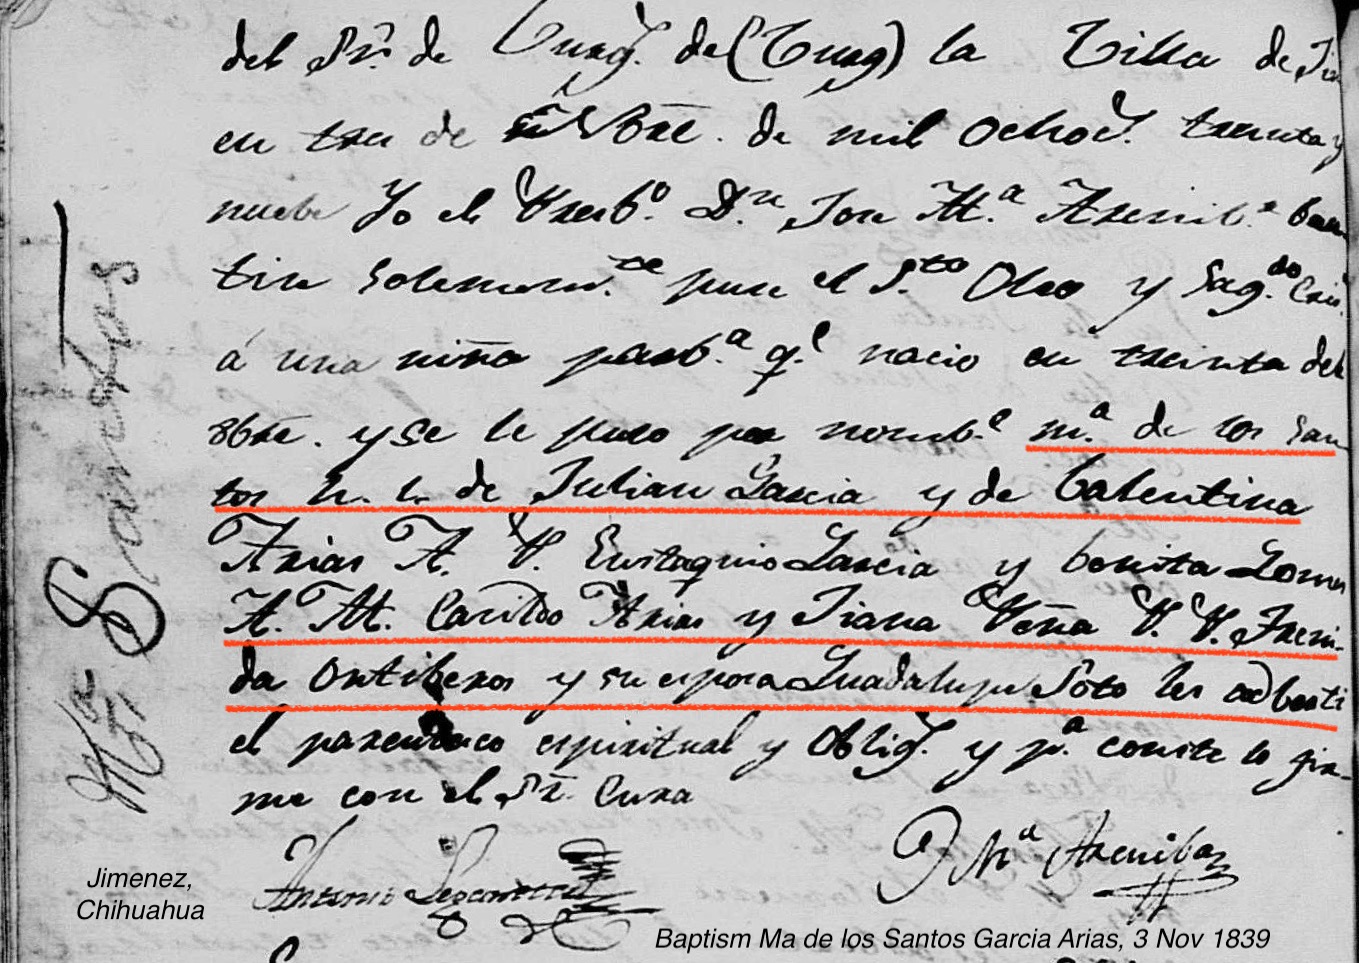 del Sr. de Curg. de (Curg) la Villa de Jim
en tres de Nbre. de mil ochos. treinta y
nuebe Yo el Presb.º D.n Jose M.ª Arenib.s bau
tise solemem.te puse el S.to Oleo y Sag.do Cris.
á una niña parb.a q.e nacio en treinta del
8bre. y se le puso por nomb.e M.a de los San
tos h. l. de Julian Garcia y de Balentina
Arias A. P. Eustaquio Garcia y benita Gomes
A. M. Carildo Arias y Tiana Peña P. P. Freni-
da Ontiberos y su esposa Guadalupe Soto les adberti
el parentesco espiritual y oblig. y p.a conste lo fir-
me con el Sr. Cura
Ma. Santos
Antonio
J M.a Arenibas
Jimenez,
Chihuahua
Baptism Ma de los Santos Garcia Arias, 3 Nov 1839